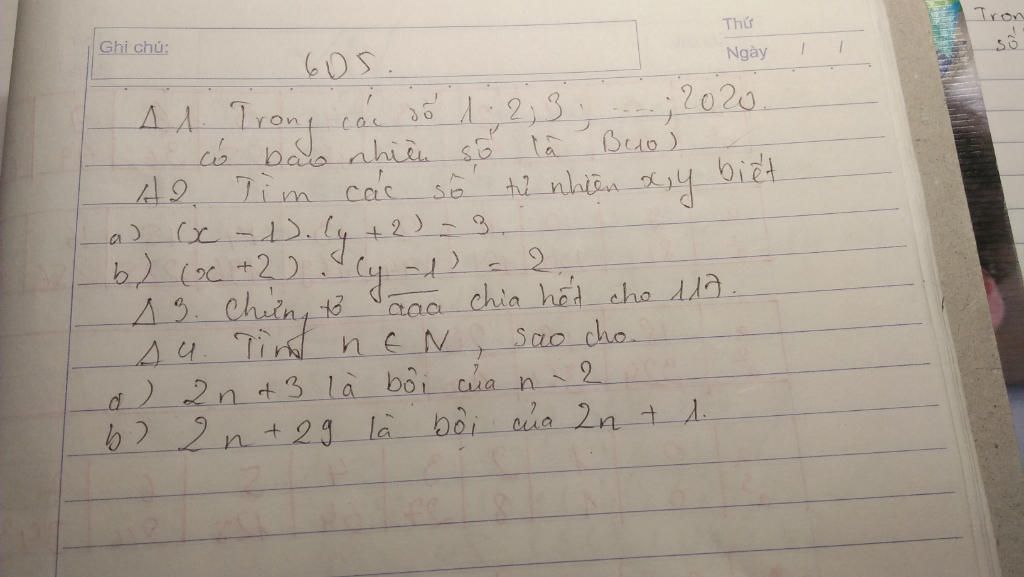 Ghi chú:
Thứ
Ngày / /
6D5.
Δ 1. Trong các số 1; 2; 3; ....; 2020.
có bao nhiêu số là B(10)
Δ2. Tìm các số tự nhiên x,y biết
a) (x - 1).(y + 2) = 3.
b) (x + 2) . (y - 1) = 2
Δ 3. Chứng tỏ aaa chia hết cho 117.
Δ 4. Tìm n ∈ N, sao cho.
a) 2n + 3 là bội của n - 2
b) 2n + 29 là bội của 2n + 1.
Tron
số